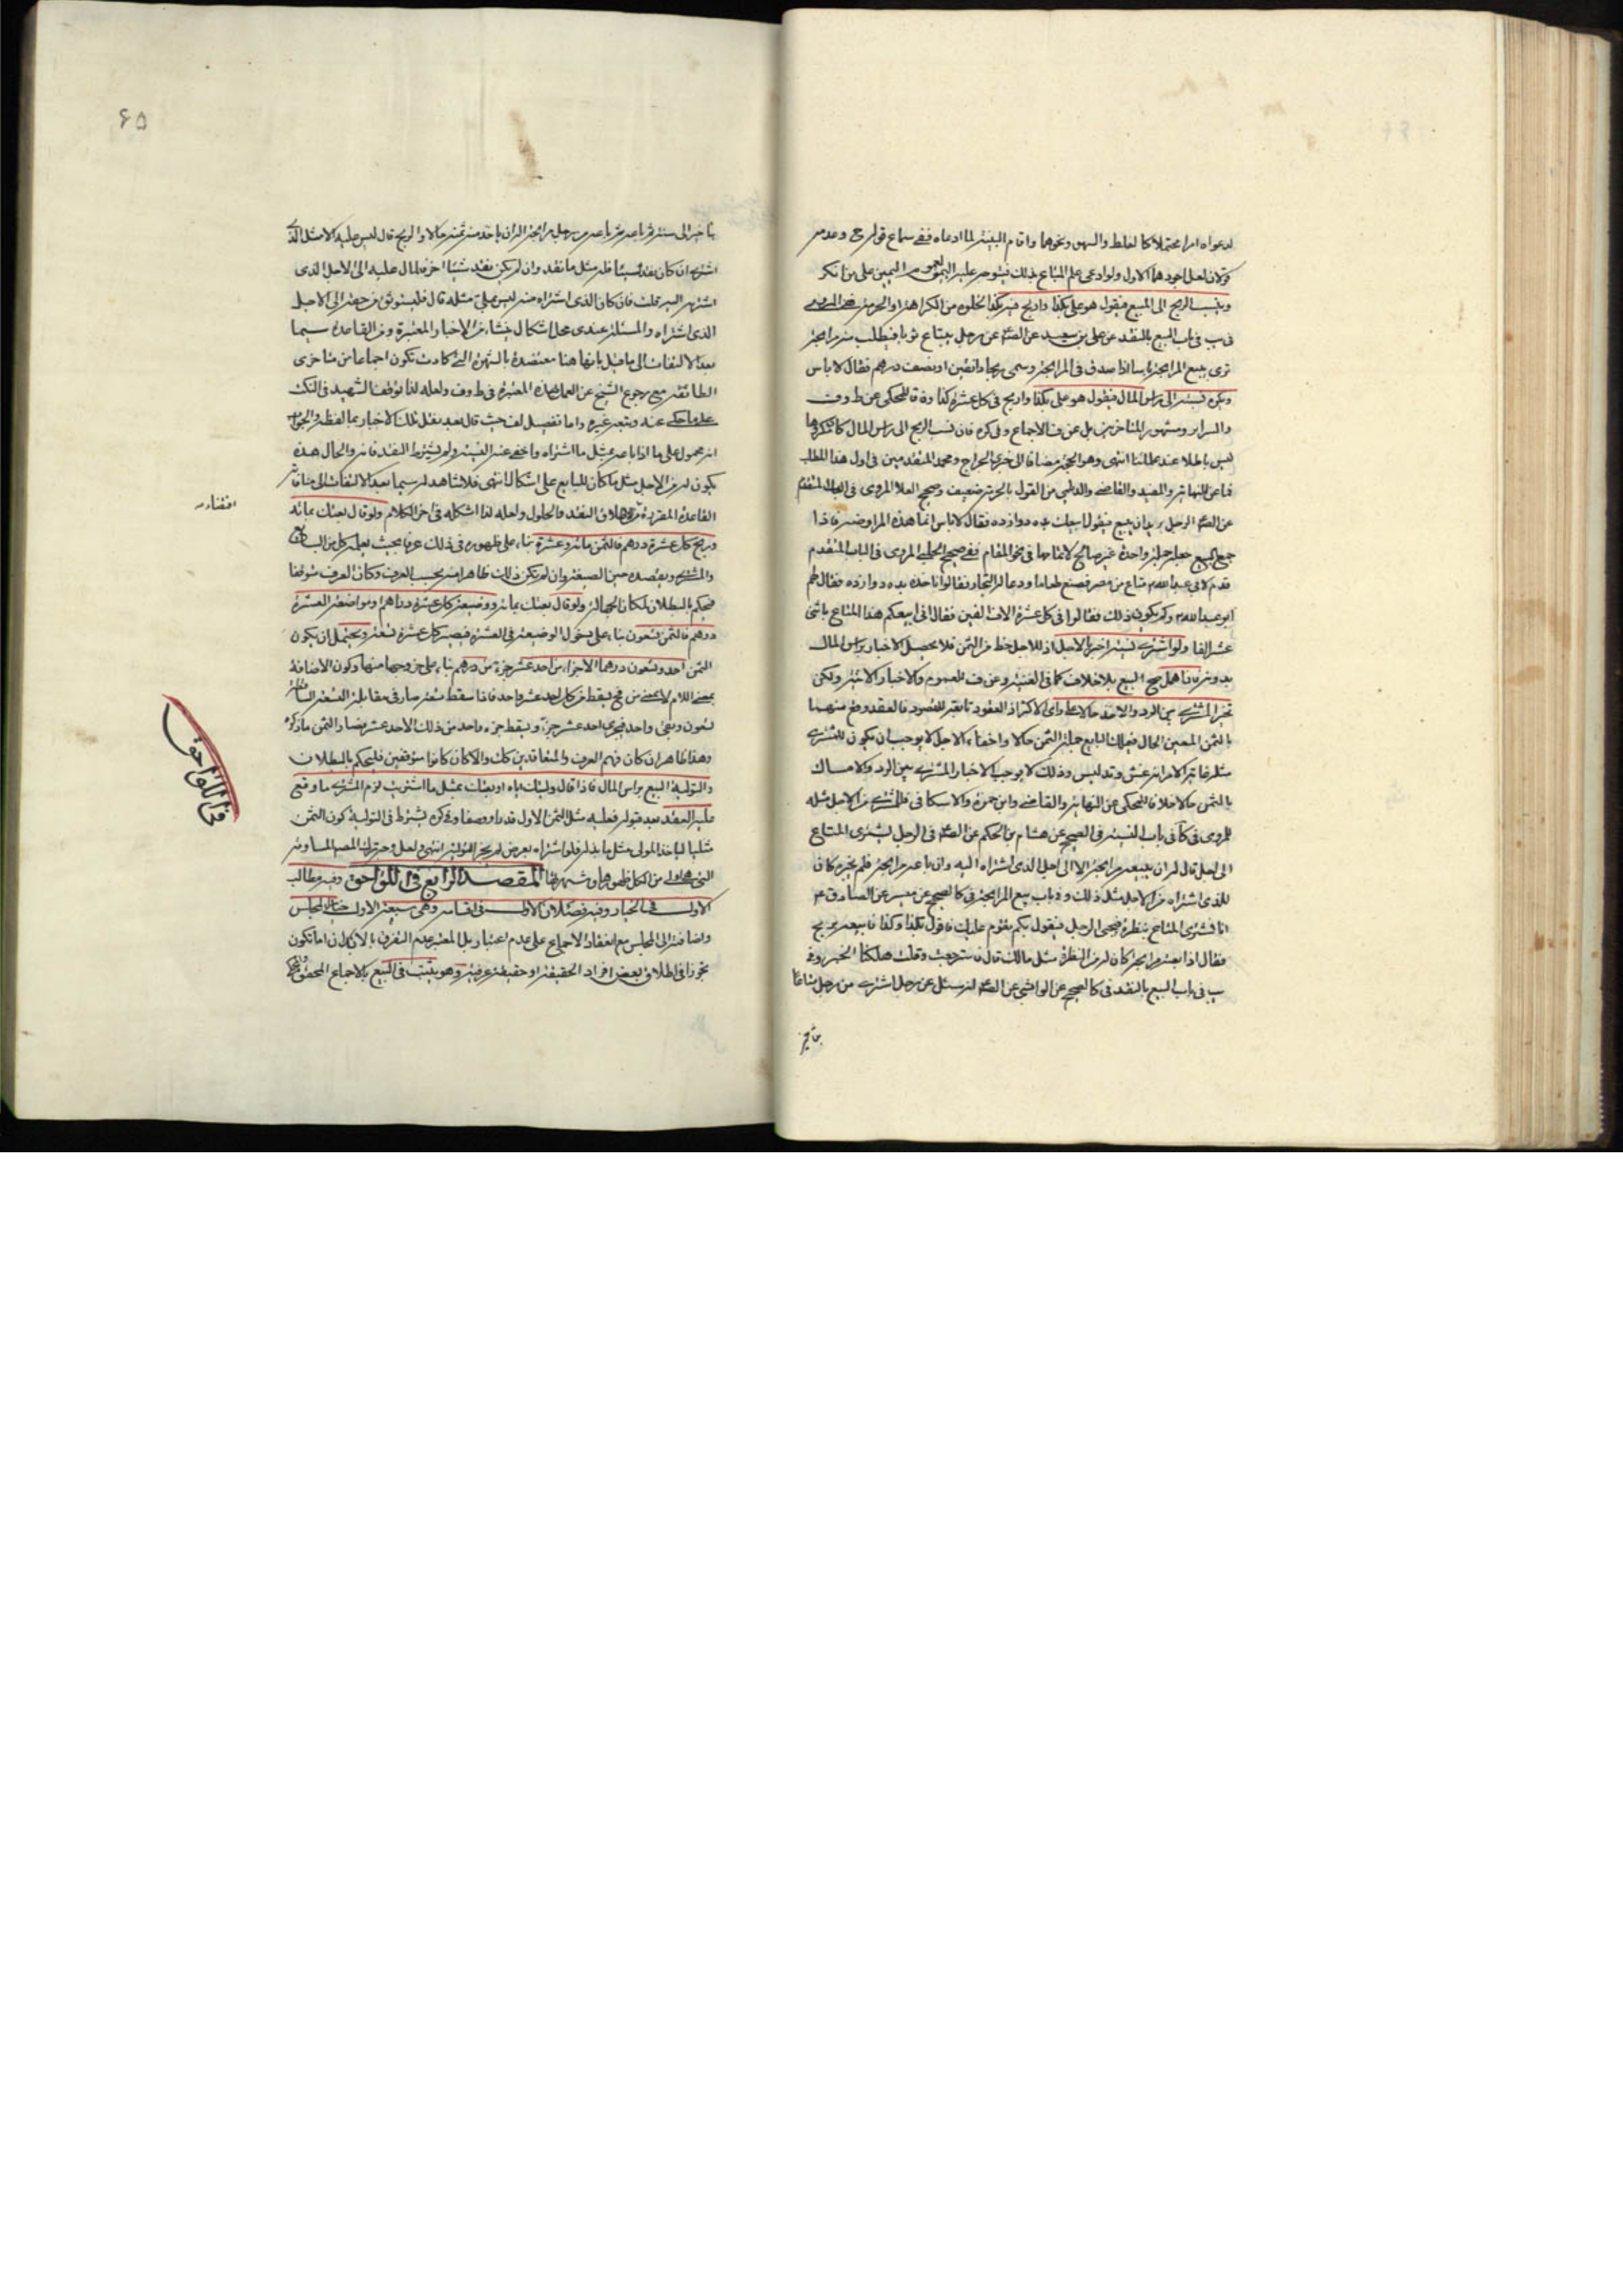 لدعواه امرا محتملا كالغلط والسهو ونحوها واقام البينة لما ادعاه ففي سماع قوله ح وعدمه
قولان لعل اجودهما الاول ولو ادعى علم المبتاع بذلك فيتوجه عليه اليمين لعموم اليمين على من انكر
وينسب الربح الى المبيع فيقول هو علي بكذا واربح فيه بكذا لخلوه من الكراهة او الحرمة
في يب في باب البيع بالنقد عن علي بن سعيد عن الصم عن رجل يبتاع ثوبا فيطلب منه مرابحة
ترى ببيع المرابحة باسا اذا صدق في المرابحة وسمى ربحا دانقين او نصف درهم فقال لا باس
ويكره نسبته الى راس المال فيقول هو علي بكذا واربح في كل عشرة كذا وفاقا للمحكي عن ط وف
والسرائر ومشهور المتاخرين بل عن ف الاجماع وفي كره فان نسب الربح الى راس المال كان مكروها
ليس باطلا عند علمائنا انتهى وهو الحجة مضافا الى خبري الجراح ومحمد المتقدمين في اول هذا المطلب
فما عن النهاية والمفيد والقاضي والديلمي من القول بالحرمة ضعيف وصحيح العلا المروي في الباب المتقدم
عن الصم الرجل يريد ان يبيع فيقول ابيعك بده دوازده فقال لا باس انما هذه المراوضة فاذا
جمع البيع جعله جملة واحدة غير صالح لاثباتها في نحو المقام ففي صحيح الحلبي المروي في الباب المتقدم
قدم لابي عبد الله ع متاع من مصر فصنع طعاما ودعا له التجار فقالوا ناخذه بده دوازده فقال لهم
ابو عبد الله ع وكم يكون ذلك فقالوا في كل عشرة الاف الفين فقال اني ابيعكم هذا المتاع باثني
عشر الفا ولو اشترى نسيئة اخبر بالاجل اذ للاجل حظ من الثمن فلا يحصل الاخبار براس المال
بدونه فان اهمل صح البيع بلا خلاف كما في الغنية وعن ف للعموم والاخبار الاتية ولكن
تخير المشتري بين الرد والاخذ حالا على راي الاكثر اذ العقود تابعة للقصود فالعقد وقع منهما
بالثمن المعين الحال فيملك البايع جملة الثمن حالا واخفاء الاجل لا يوجب ان يكون للمشتري
مثله غاية الامر انه غش وتدليس وذلك لا يوجب الاخبار المشتري بين الرد والامساك
بالثمن حالا خلافا للمحكي عن النهاية والقاضي وابن حمزة والاسكافي فللمشتري من الاجل مثله
للمروي في كا في باب النسيئة في الصحيح عن هشام بن الحكم عن الصم في الرجل يشترى المتاع
الى اجل قال ليس له ان يبيعه مرابحة الا الى اجل الذي اشتراه اليه وان باعه مرابحة فلم يخبره كان
للذي اشتراه من الاجل مثل ذلك وفي باب بيع المرابحة في كا الصحيح عن ميسر عن الصادق ع
انا نشترى المتاع بنظرة فيجئ الرجل فيقول بكم تقوم عليك فاقول بكذا وكذا فابيعه بربح
فقال اذا بعته مرابحة كان له من النظرة مثل مالك قال فاسترجعت وقلت هلكنا الخبر وفي
يب في باب البيع بالنقد في كا الصحيح عن الواشي عن الصم انه سئل عن رجل اشترى من رجل متاعا
بتاخير
٦٥
بتاخير الى سنة ثم باعه من رجل مرابحة اله ان ياخذ منه ثمنه حالا والربح قال ليس عليه الا مثل الذي
اشترى ان كان نقد شيئا فله مثل ما نقد وان لم يكن نقد شيئا اخر فالمال عليه الى الاجل الذي
اشتراه اليه قلت فان كان الذي اشتراه منه ليس بملي مثله قال فليستوثق من حقه الى الاجل
الذي اشتراه والمسئلة عندي محل اشكال ينشاء من الاخبار المعتبرة ومن القاعدة سيما
بعد الالتفات الى ما قيل بانها هنا معتضدة بالشهرة التي كادت تكون اجماعا من متاخري
الطائفة مع رجوع الشيخ عن العمل بهذه المعتبرة في ط وف ولعله لذا توقف الشهيد في النكت
على ما حكي عنه وتبعه غيره واما تفصيل لف حيث قال بعد نقل تلك الاخبار بما لفظه والجواب
انه محمول على ما اذا باعه بمثل ما اشتراه واخفى عنه النسيئة ولم يشترط النقد فانه والحال هذه
يكون له من الاجل مثل ما كان للبايع على اشكال انتهى فلا شاهد له سيما بعد الالتفات الى منافاته
القاعدة المقررة من اطلاق النقد فالحلول ولعله لذا اشكله في اخر الكلام ولو قال بعتك بمائة
اقتضاء
وربح كل عشرة درهم فالثمن مائة وعشرة بناء على ظهوره في ذلك عرفا بحيث يعلمه كل من البايع
والمشتري ويقصده حين الصيغة وان لم يكن ذلك ظاهرا منه بحسب العرف وكان العرف متوقفا
فيحكم بالبطلان لمكان الجهالة ولو قال بعتك بمائة ووضيعة كل عشرة درهم او مواضعة العشرة
درهم فالثمن تسعون بناء على دخول الوضيعة في العشرة فيصير كل عشرة تسعة ويحتمل ان يكون
الثمن احد وتسعون درهما الا جزاء من احد عشر جزء من درهم بناء على خروجها منها وكون الاضافة
بمعنى اللام لا بمعنى من فح يسقط من كل احد عشر واحد فاذا سقط تسعة صار في مقابلة التسعة الساقطة
تسعون وبقي واحد فيجزى احد عشر جزء ويسقط جزء واحد من ذلك الاحد عشر فصار الثمن ما ذكره
وهذا ظاهر ان كان فهم العرف والمتعاقدين كك والا كان كانوا متوقفين فليحكم بالبطلان
والتولية البيع براس المال فاذا قال وليتك اياه او بعتك بمثل ما اشتريت لزم المشتري ما وقع
عليه العقد بعد قوله فعليه مثل الثمن الاول قدرا ووصفا وفي كره يشترط في التولية كون الثمن
مثليا لياخذ المولى مثل ما بذل فلو اشتراه بعرض لم يجز التولية انتهى ولعل وجه ترك المصم المساومة
من الكل ظهورها وشهرتها المقصد الرابع في اللواحق وفيه مطالب
في اللواحق
الاول في الخيار وفيه فصلان الاول في اقسامه وهي سبعة الاول خيار المجلس
واضافته الى المجلس مع انعقاد الاجماع على عدم اعتباره بل المعتبر عدم التفرق بالابدان اما تكون
تجوزا في اطلاق بعض افراد الحقيقة او حقيقة عرفية وهو يثبت في البيع بالاجماع المحقق